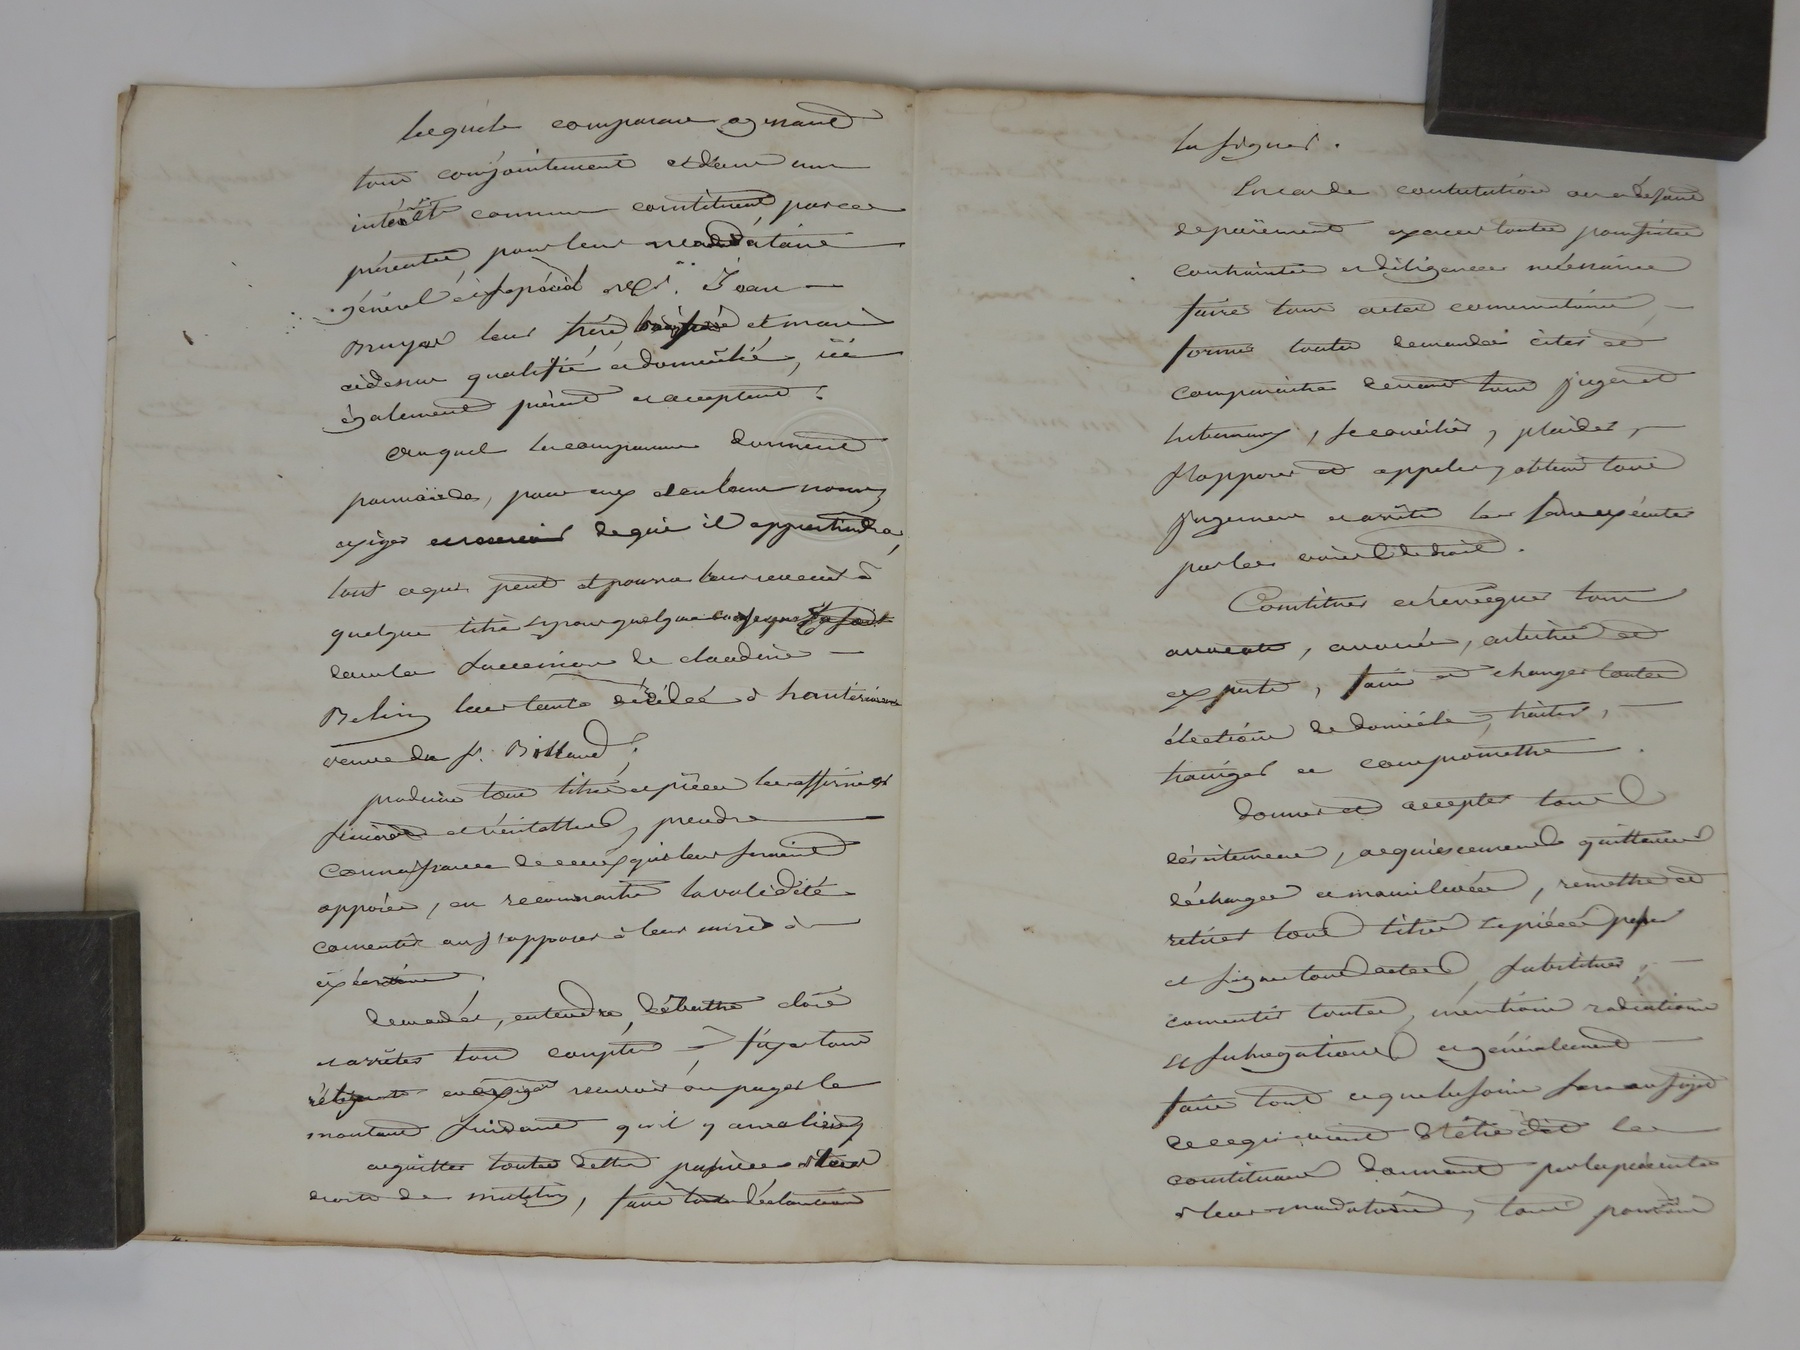 Lesquels comparans agissant
tous conjointement et dans un
intérêt commun constituent par ces
présentes pour leur mandataire
général et spécial Sr. Jean
Bruyas leur frère et mari
cidessus qualifié et domicilié, ici
également présent et acceptant;
Auquel les comparans donnent
pouvoir de, pour eux et en leurs noms
exiger et recevoir de qui il appartiendra,
tout ce qui peut et pourra leur revenir à
quelque titre et pour quelque cause que ce soit
dans la succession de claudine
Belin leur tante décédée à
veuve du Sr. Billaud;
produire tous titres et pièces les affirmer
sincères et véritables, prendre
connaissance de ceux qui leur seraient
opposés, en reconnaitre la validité
consentir ou s'opposer à leur mise à
exécution;
demander, entendre, débattre clore
et arrêter tous comptes fixer tous
réliquats en exiger recevoir ou payer le
montant suivant qu'il y aura lieu
acquitter toutes dettes passives et tous
droits de mutation, faire toutes déclarations
les signer.
En cas de contestation ou à défaut
de paiement exercer toutes poursuites
contraintes et diligences nécessaires
faire tous actes conservatoires
former toutes demandes citer et
comparaitre devant tous juges et
tribunaux, se concilier, plaider,
s'opposer et appeler, obtenir tous
jugemens et arrêts les faire exécuter
par les voies de droit.
Constituer et révoquer tous
avocats, avoués, arbitres et
experts, faire et changer toutes
élections de domicile, traiter,
transiger et compromettre.
Donner et accepter tous
désistemens, acquiescemens quittances
décharges et mainlevées, remettre et
retirer tous titres et pièces passer
et signer tous actes, substituer,
consentir toutes, mentions radiations
et subrogations et généralement
faire tout ce que besoin sera au sujet
de ce qui vient d'être dit les
constituans donnant par les présentes
à leur mandataire, tous pouvoirs